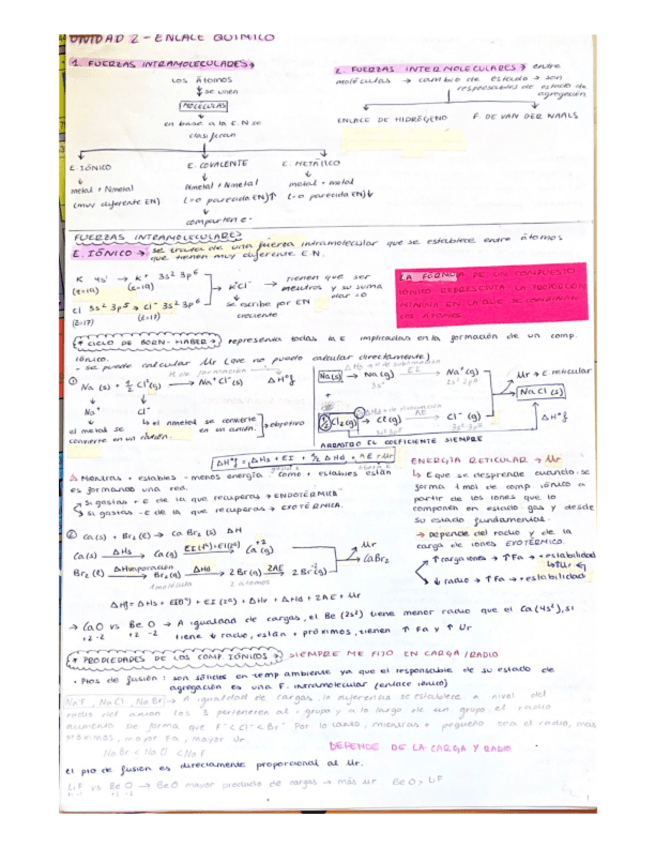 UNIDAD 2 - ENLACE QUÍMICO
1. FUERZAS INTRAMOLECULARES →
Los átomos
↓ se unen
MOLÉCULAS
en base a la E.N se
clasifican
E. IÓNICO
metal + Nmetal
(muy diferente EN)
E. COVALENTE
Nmetal + Nmetal
(=o parecida EN)↑
comparten e-
E. METÁLICO
metal + metal
(=o parecida EN)↓
2. FUERZAS INTERMOLECULARES → entre
moléculas → cambio de estado → son
responsables de estado de
agregación
ENLACE DE HIDRÓGENO
F. DE VAN DER WAALS
FUERZAS INTRAMOLECULARES
E. IÓNICO → se trata de una fuerza intramolecular que se establece entre átomos
que tienen muy diferente E.N.
K 4s¹ → K+ 3s² 3p⁶
(Z=19) (Z=19)
Cl 3s² 3p⁵ → Cl- 3s² 3p⁶
(Z=17) (Z=17)
K+Cl- → tienen que ser
neutros y su suma
dar =0
↳ se escribe por EN
creciente
LA FÓRMULA DE UN COMPUESTO
IÓNICO REPRESENTA LA PROPORCIÓN
MÍNIMA EN LA QUE SE COMBINAN
LOS ÁTOMOS.
* CICLO DE BORN-HABER * representa todas la E implicadas en la formación de un comp.
iónico.
- se puede calcular Ur (que no puedo calcular directamente)
① Na (s) + ½ Cl2 (g) → Na+Cl- (s) ΔHºf
Na+ Cl-
el metal se
convierte en un catión.
↳ el nmetal se convierte
en un anión.
objetivo
Na(s) → Na (g) EI → Na+ (g)
½ Cl2 (g) → Cl (g) AE → Cl- (g)
Ur → E reticular
NaCl (s)
ΔHºf
ARRASTRO EL COEFICIENTE SIEMPRE
ΔHºf = ΔHs + EI + ½ ΔHd + AE + Ur
Mientras + estables - menos energía. como + estables están
es formando una red.
si gastas + E de la que recuperas → ENDOTÉRMICA
si gastas - E de la que recuperas → EXOTÉRMICA.
ENERGÍA RETICULAR → Ur
↳ E que se desprende cuando se
forma 1 mol de comp. iónico a
partir de los iones que lo
componen en estado gas y desde
su estado fundamental.
→ Depende del radio y de la
carga de iones EXOTÉRMICO.
↑ carga iones → ↑ Fa → + estabilidad
↳ ↑ Ur
↓ radio → ↑ Fa → + estabilidad
② Ca(s) + Br2 (l) → Ca Br2 (s) ΔH
Ca(s) ΔHs → Ca (g) EI(1º)+EI(2º) → Ca+2 (g)
Br2 (l) ΔHvaporización → Br2 (g) ΔHd → 2 Br (g) 2AE → 2 Br- (g)
1 molécula 2 átomos
Ur
CaBr2
ΔHf = ΔHs + EI(1º) + EI (2º) + ΔHv + ΔHd + 2AE + Ur
→ CaO vs Be O → A igualdad de cargas, el Be (2s²) tiene menor radio que el Ca (4s²), si
+2 -2 +2 -2 tiene ↓ radio, están + próximos, tienen ↑ Fa y ↑ Ur
* PROPIEDADES DE LOS COMP. IÓNICOS * → SIEMPRE ME FIJO EN CARGA/RADIO
• Ptos de fusión: son sólidos en temp ambiente ya que el responsable de su estado de
agregación es una F. intramolecular (enlace iónico)
NaF, NaCl, NaBr → A igualdad de cargas, la diferencia se establece a nivel del
radio del anión los 3 pertenecen al - grupo y a lo largo de un grupo el radio
aumenta de forma que F- < Cl- < Br- Por lo tanto, mientras + pequeño sea el radio, más
próximos, mayor Fa, mayor Ur.
NaBr < NaCl < NaF
DEPENDE DE LA CARGA Y RADIO
el pto de fusión es directamente proporcional al Ur.
LiF vs Be O → BeO mayor producto de cargas → más Ur BeO > LiF
+2 -2